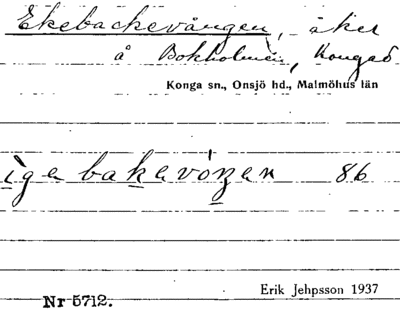 Ekebackevången, åker
å Bokholmen, Kongaö
Konga sn., Onsjö hd., Malmöhus län
ìgebakavóŋen 86
Erik Jehpsson 1937
Nr 5712.